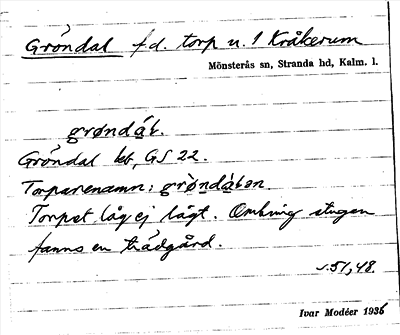 Gröndal f.d. torp u. 1 Kråkerum
Mönsterås sn, Stranda hd, Kalm. l.
grøndáɫ.
Gröndal kt, GS 22.
Torparenamn: grǿndàɫən.
Torpet låg ej lågt. Omkring stugan
fanns en trädgård.
s. 51, 48.
Ivar Modéer 1936